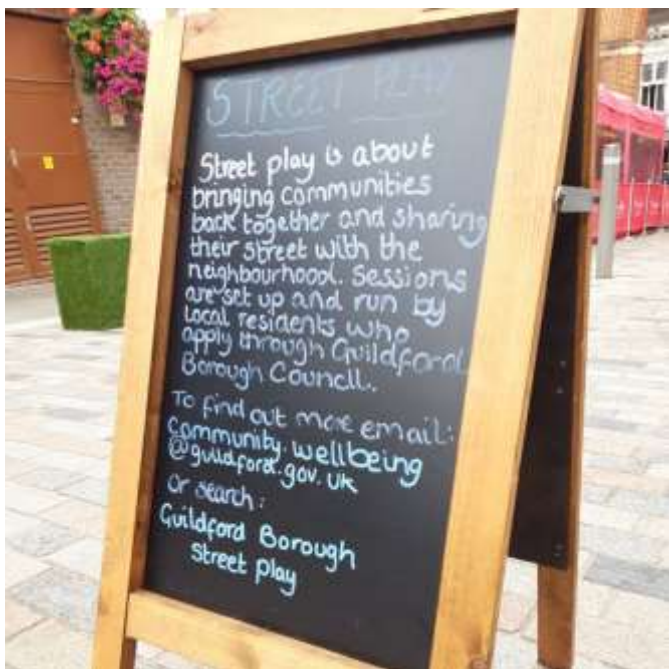 STREET PLAY
Street play is about
bringing communities
back together and sharing
their street with the
neighbourhood. Sessions
are set up and run by
local residents who
apply through Guildford
Borough Council.
To find out more email:
community.wellbeing
@guildford.gov.uk
Or search:
Guildford Borough
Street play